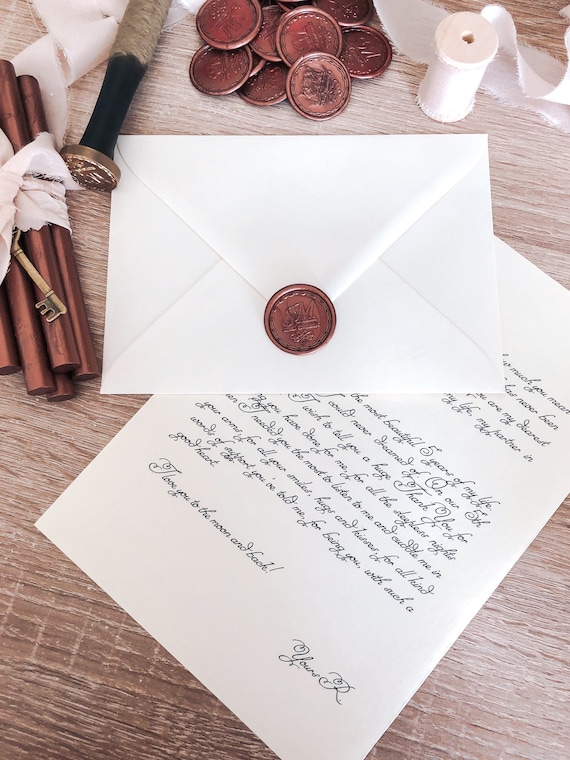 SM
how much you mean
has never been
you are my dearest
my life, my partner in
the most beautiful 5 years of my life
could never dreamed of. On our 5th
wish to tell you a huge Thank You for
you have done for me, for all the sleepless nights
I needed you the most to listen to me and cuddle me in
your arms, for all your smiles, hugs and kisses, for all kind
words of support you've told me, for being you, with such a
good heart.
I love you to the moon and back!
Yours R.